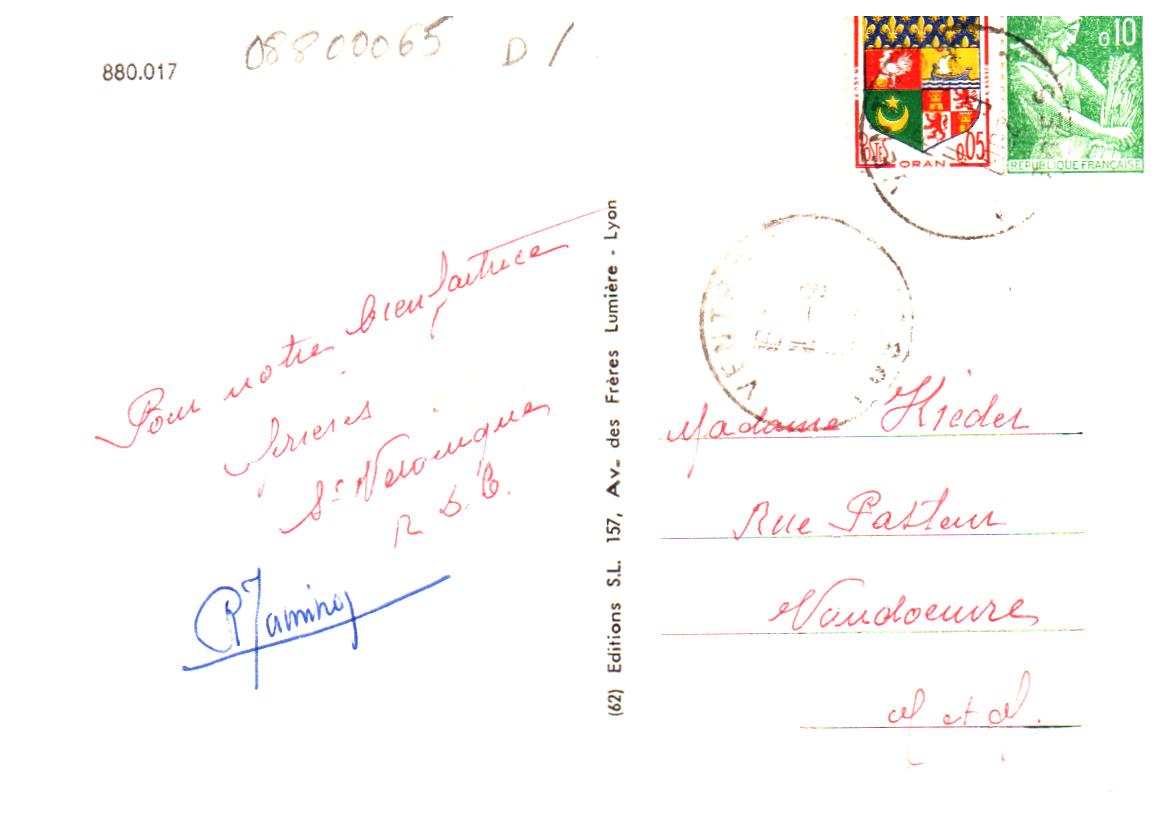 880.017
08800065 D/
0,10
POSTES
ORAN
0,05
REPUBLIQUE FRANCAISE
VENTR
Pour notre bienfaitrice
prières
Sr Véronique
R D C.
(62) Editions S.L. 157, Av. des Frères Lumière - Lyon
Madame Kieder
Rue Pasteur
Vandoeuvre
M et M.